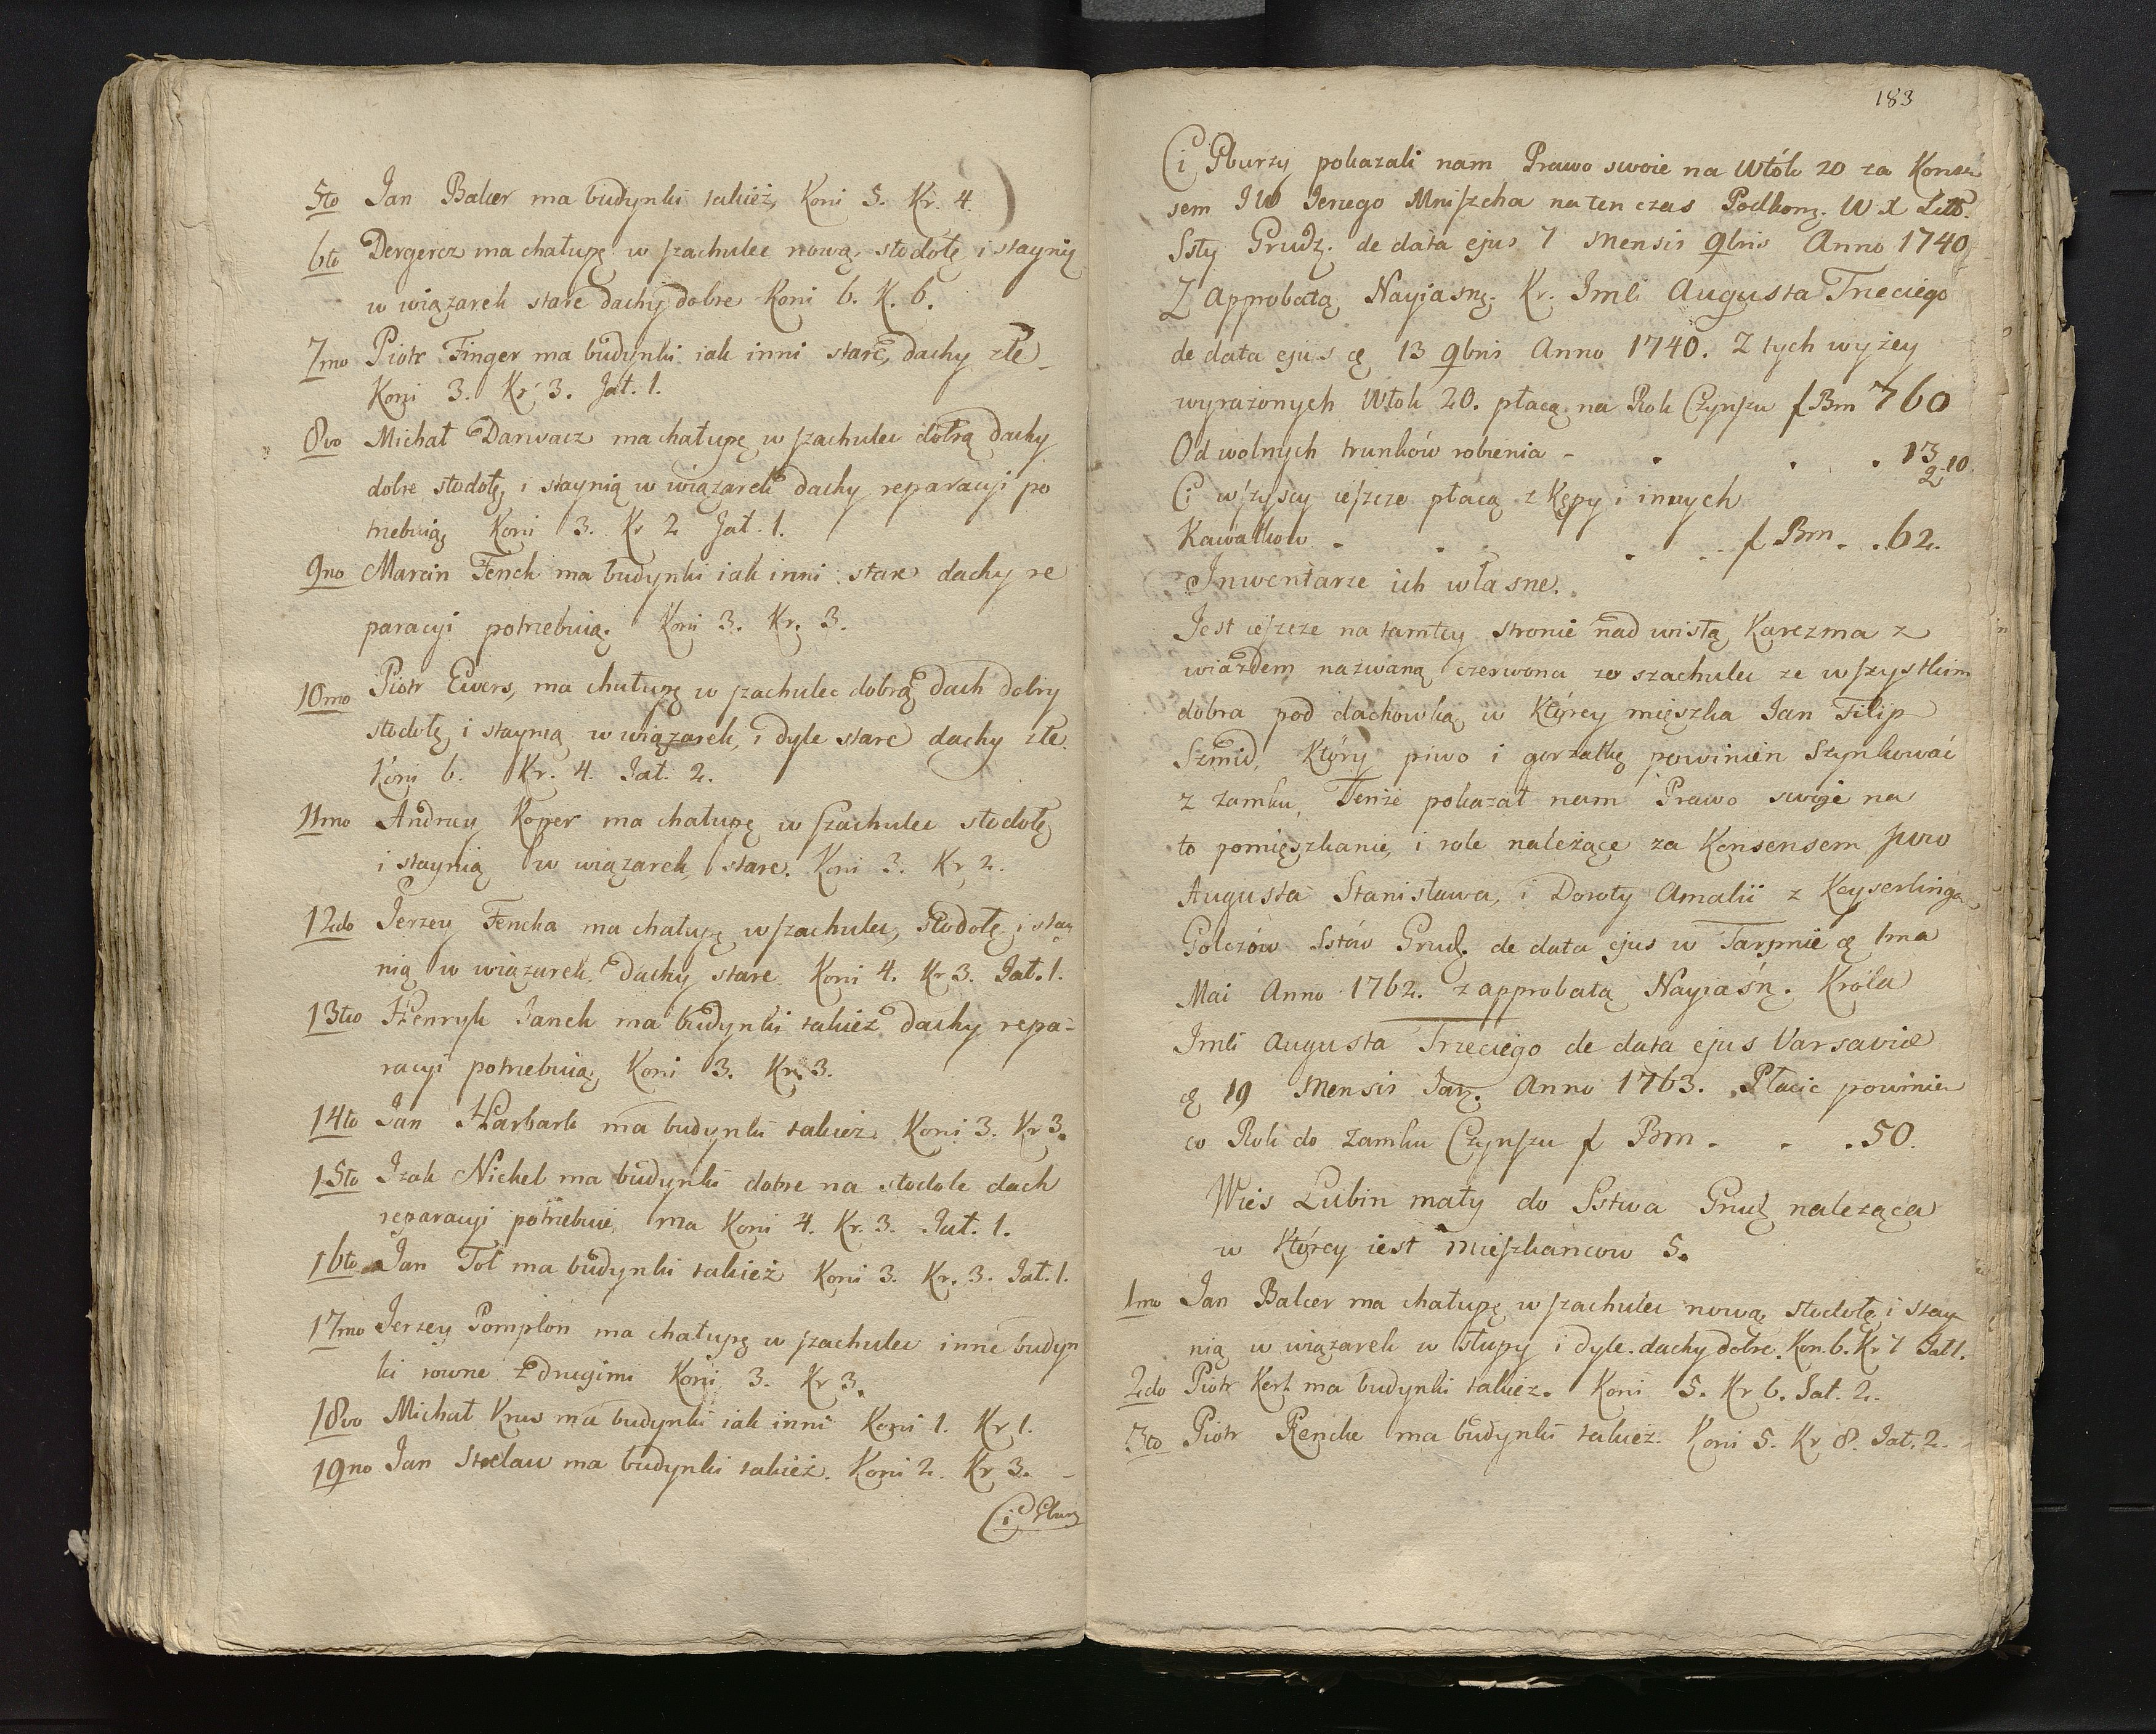 5to Jan Balcer ma budynki takież, Koni 5. Kr. 4.
6to Dergercz ma chałupę w szachulec nową, stodołę i staynię
w wiązarek stare dachy dobre Koni 6. K. 6.
7mo Piotr Finger ma budynki iak inni stare, dachy złe
Koni 3. Kr. 3. Jał. 1.
8vo Michał Darwacz ma chałupę w szachulec dobrą dachy
dobre stodołę i staynią w wiązarek dachy reparacyi po
trzebuią Koni 3. Kr 2 Jał. 1.
9no Marcin Fench ma budynki iak inni stare dachy re
paracyi potrzebuią. Koni 3. Kr. 3.
10mo Piotr Ewers, ma chałupę w szachulec dobrą dach dobry
stodołę i staynią w wiązarek, i dyle stare dachy złe.
Koni 6. Kr. 4. Jał. 2.
11mo Andrzey Koper ma chałupę w szachulec stodołę
i staynią w wiązarek stare. Koni 3. Kr 2.
12do Jerzey Fencha ma chałupę w szachulec, stodołę i stay
nią w wiązarek dachy stare Koni 4. Kr 3. Jał. 1.
13tio Henryk Janch ma budynki takież dachy repa-
racyi potrzebuią, Koni 3. Kr. 3.
14to Jan Harbarh ma budynki takież. Koni 3. Kr 3.
15to Izak Nickel ma budynki dobre na stodole dach
reparacyi potrzebuie, ma Koni 4. Kr. 3. Jał. 1.
16to Jan Tol ma budynki takież Koni 3. Kr. 3. Jał. 1.
17mo Jerzey Pomplon ma chałupę w szachulec inne budyn
ki rowne z drugimi Koni 3. Kr 3.
18vo Michał Krus ma budynki iak inni Koni 1. Kr 1.
19no Jan Stelau ma budynki takież. Koni 2. Kr 3.
Ci Gburz
183
Ci Gburzy pokazali nam Prawo swoie na Włók 20 za Konsen
sem JW Jerzego Mniszcha na ten czas Podkom. W X Litt.
Ssty Grudz. de data ejus 7 Mensis 9bris Anno 1740
Z Approbatą Nayiasn. Kr. Jmći Augusta Trzeciego
de data ejus 13 9bris Anno 1740. Z tych wyżey
wyrażonych Włók 20. płacą na Rok Czynszu f Bm 760
Od wolnych trunków robienia - . . . 13 2 10.
Ci wszyscy ieszcze płacą z Kępy i innych
Kawałkow . . . . f Bm . . 62.
Inwentarze ich własne.
Jest ieszcze na tamtey stronie nad wisłą Karczma z
wiazdem nazwana czerwona w szachulec ze wszystkim
dobra pod dachowką w Którey mięszka Jan Filip
Szmid, Który piwo i gorzałkę powinien Szynkować
z zamku, Tenże pokazał nam Prawo swoje na
to pomięszkanie, i role należące za Konsensem
Augusta Stanisława, i Doroty Amalii z Keyserlinga
Golczów Sstów Grudz. de data ejus w Tarpnie 1ma
Mai Anno 1762. z approbatą Nayiaśn. Króla
Jmći Augusta Trzeciego de data ejus Varsaviæ
19 Mensis Jan. Anno 1763. Płacic powinien
co Rok do Zamku Czynszu f Bm . . . 50.
Wieś Lubin mały do Sstwa Grudz należąca
w Którey iest mieszkancow 5.
1mo Jan Balcer ma chałupę w szachulec nową stodołę i stay
nią w wiązarek w słupy i dyle. dachy dobre. Kon. 6. Kr 7 Jał 1.
2do Piotr Kerk ma budynki takież. Koni 5. Kr 6. Jał. 2.
3to Piotr Rencke ma budynki takież. Koni 5. Kr. 8. Jał. 2.